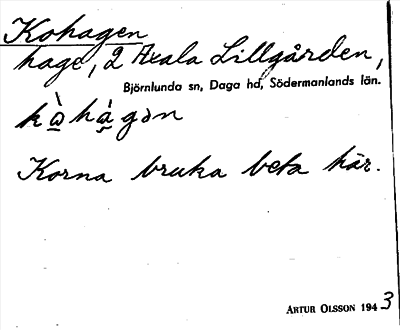 Kohagen
hage, 2 Axala Lillgården,
Björnlunda sn, Daga hd, Södermanlands län.
kὼ̱há̱gən
Korna bruka beta här.
ARTUR OLSSON 1943